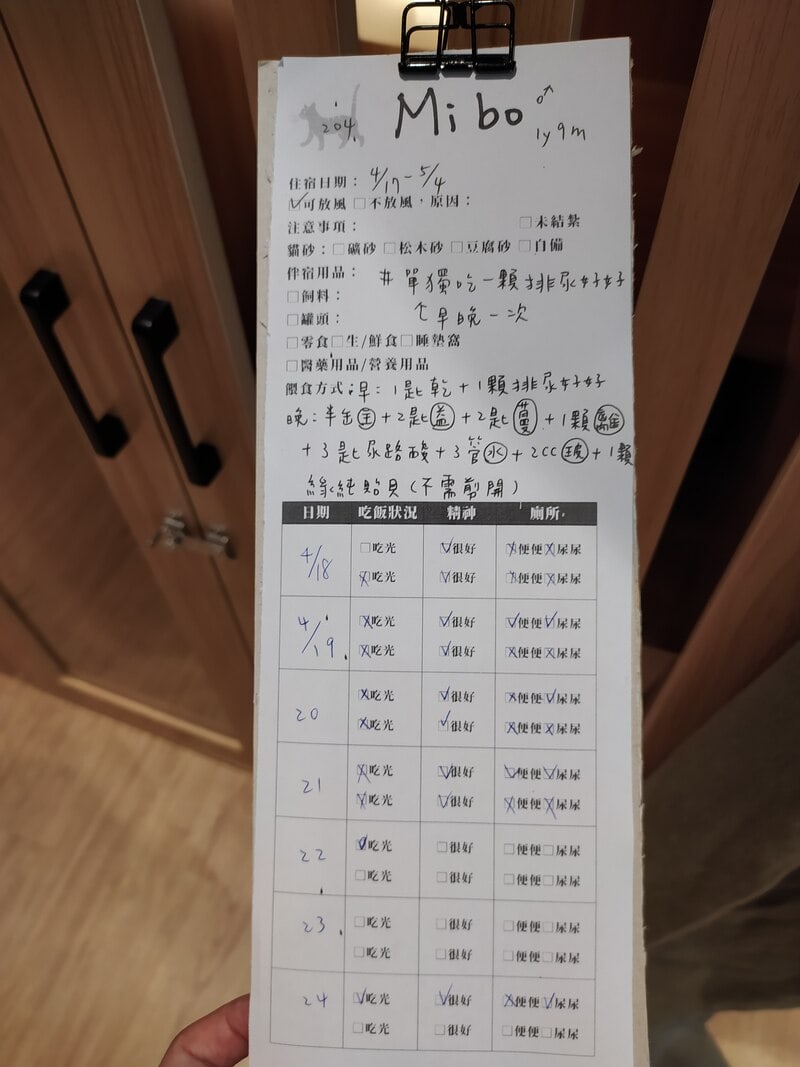 204
Mi bo ♂
1y9m
住宿日期：4/17-5/4
☑可放風 □不放風，原因：
注意事項： □未結紮
貓砂：□礦砂 □松木砂 □豆腐砂 □自備
伴宿用品： # 單獨吃一顆排尿好好
□飼料： 早晚一次
□罐頭：
□零食□生/鮮食□睡墊窩
□醫藥用品/營養用品
餵食方式：早：1匙乾+1顆排尿好好
晚：半缶主+2匙益+2匙蔓+1顆離
+3匙尿路酸+3管水+2cc玻+1顆
綠純貽貝(不需剪開)
日期 吃飯狀況 精神 廁所
4/18 □吃光 ☑很好 ☒便便☒尿尿
☒吃光 ☑很好 ☒便便☒尿尿
4/19 ☒吃光 ☑很好 ☑便便☑尿尿
☒吃光 ☑很好 ☒便便☒尿尿
20 ☒吃光 ☑很好 ☒便便☑尿尿
☒吃光 ☑很好 ☒便便☒尿尿
21 ☒吃光 ☑很好 ☑便便☑尿尿
☒吃光 ☑很好 ☒便便☒尿尿
22 ☑吃光 □很好 □便便□尿尿
□吃光 □很好 □便便□尿尿
23 □吃光 □很好 □便便□尿尿
□吃光 □很好 □便便□尿尿
24 ☑吃光 ☑很好 ☒便便☑尿尿
□吃光 □很好 □便便□尿尿